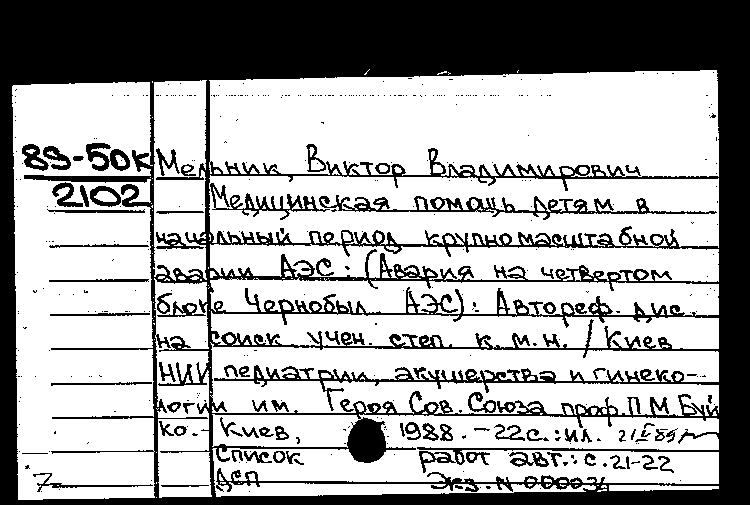 89-50К Мельник, Виктор Владимирович
2102 Медицинская помощь детям в
начальный период крупномасштабной
аварии АЭС: (Авария на четвертом
блоке Чернобыл. АЭС): Автореф. дис.
на соиск. учен. степ. к.м.н. / Киев.
НИИ педиатрии, акушерства и гинеко-
логии им. Героя Сов. Союза проф. П.М. Буй
ко. - Киев, 1988. - 22с.: ил.
Список работ авт.: с. 21-22
7 ДСП Экз. N 000034